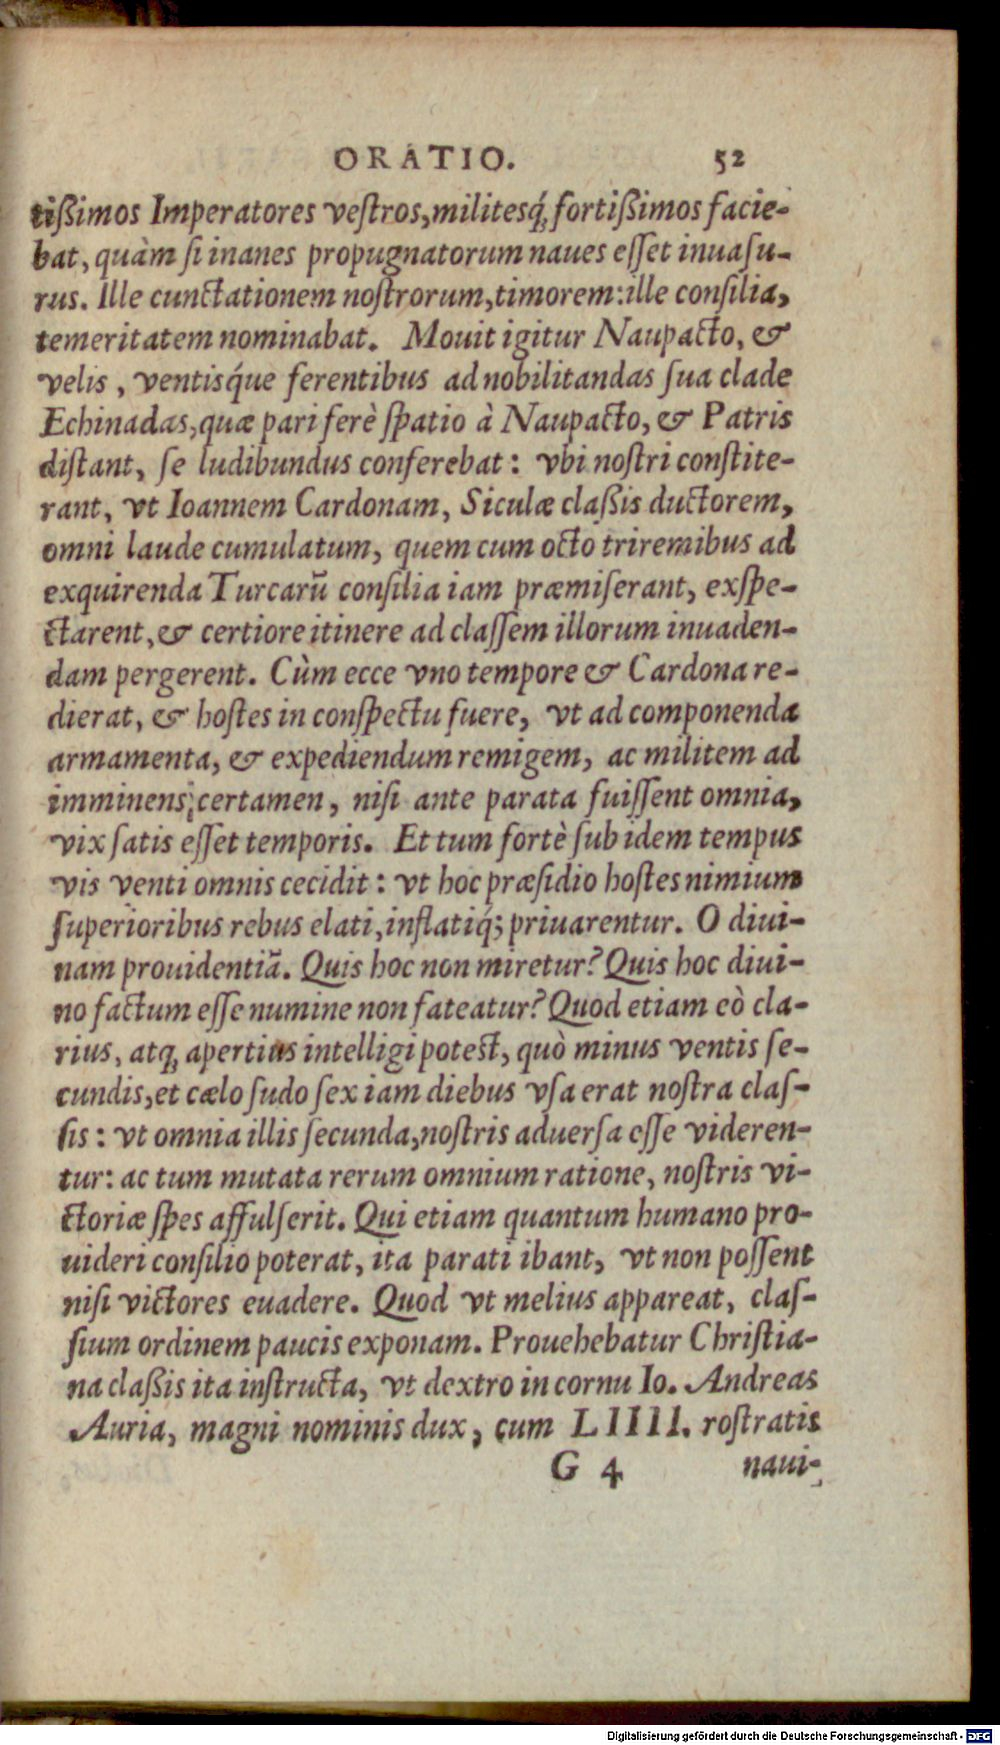 ORATIO. 52
tißimos Imperatores veſtros, militesq́; fortißimos facie-
bat, quàm ſi inanes propugnatorum naues eſſet inuaſu-
rus. Ille cunctationem noſtrorum, timorem: ille conſilia,
temeritatem nominabat. Mouit igitur Naupacto, &
velis, ventisq́ue ferentibus ad nobilitandas ſua clade
Echinadas, quæ pari ferè ſpatio à Naupacto, & Patris
diſtant, ſe ludibundus conferebat: vbi noſtri conſtite-
rant, vt Ioannem Cardonam, Siculæ claßis ductorem,
omni laude cumulatum, quem cum octo triremibus ad
exquirenda Turcarũ conſilia iam præmiſerant, exſpe-
ctarent, & certiore itinere ad claſſem illorum inuaden-
dam pergerent. Cùm ecce vno tempore & Cardona re-
dierat, & hoſtes in conſpectu fuere, vt ad componenda
armamenta, & expediendum remigem, ac militem ad
imminens certamen, niſi ante parata fuiſſent omnia,
vix ſatis eſſet temporis. Et tum fortè ſub idem tempus
vis venti omnis cecidit: vt hoc præſidio hoſtes nimium
ſuperioribus rebus elati, inflatiq́; priuarentur. O diui-
nam prouidentiã. Quis hoc non miretur? Quis hoc diui-
no factum eſſe numine non fateatur? Quod etiam eò cla-
rius, atq; apertius intelligi poteſt, quò minus ventis ſe-
cundis, et cælo ſudo ſex iam diebus vſa erat noſtra claſ-
ſis: vt omnia illis ſecunda, noſtris aduerſa eſſe videren-
tur: ac tum mutata rerum omnium ratione, noſtris vi-
ctoriæ ſpes affulſerit. Qui etiam quantum humano pro-
uideri conſilio poterat, ita parati ibant, vt non poſſent
niſi victores euadere. Quod vt melius appareat, claſ-
ſium ordinem paucis exponam. Prouehebatur Chriſtia-
na claßis ita inſtructa, vt dextro in cornu Io. Andreas
Auria, magni nominis dux, cum LIIII. roſtratis
G 4 naui-
Digitalisierung gefördert durch die Deutsche Forschungsgemeinschaft - DFG